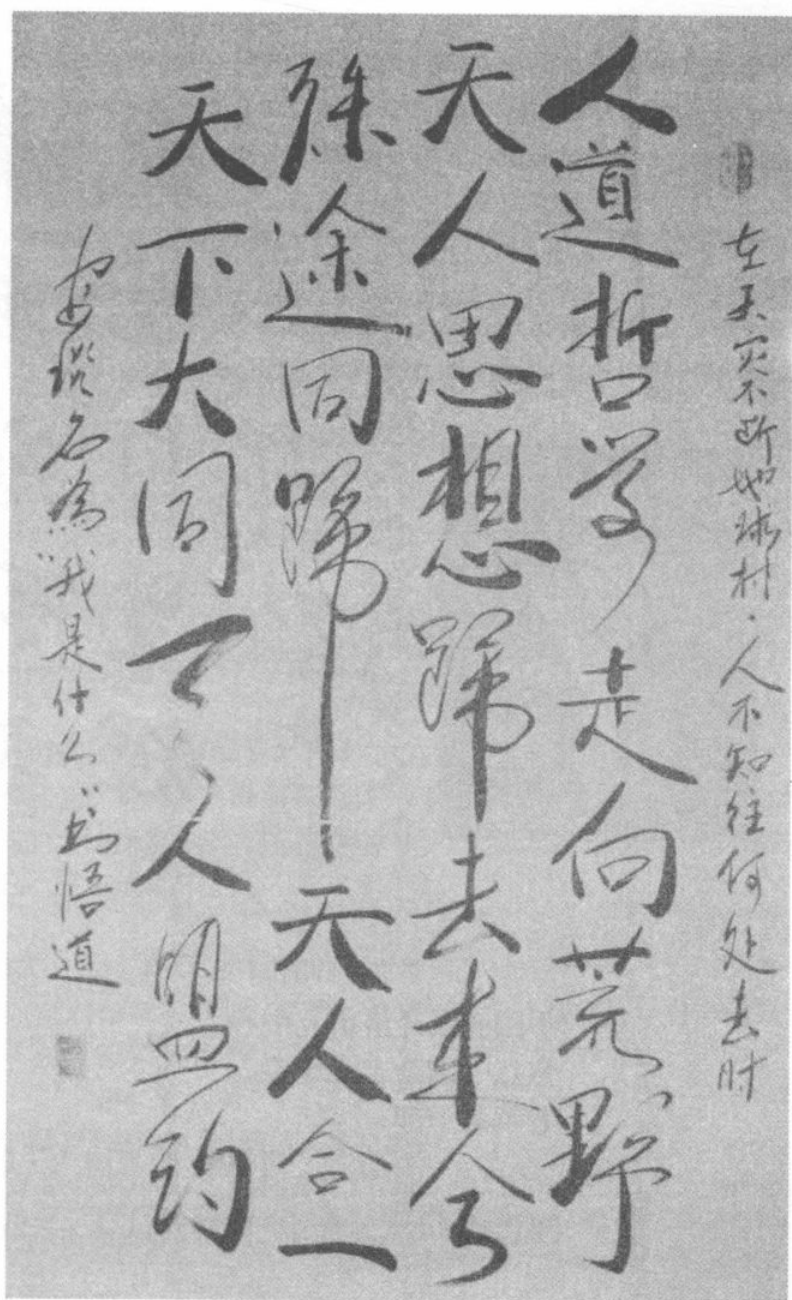 在天灾不断地球村，人不知往何处去时
人道哲学走向荒野
天人思想歸去来兮
殊途同歸天人合一
天下大同天人盟约
名為“我是什么”為悟道